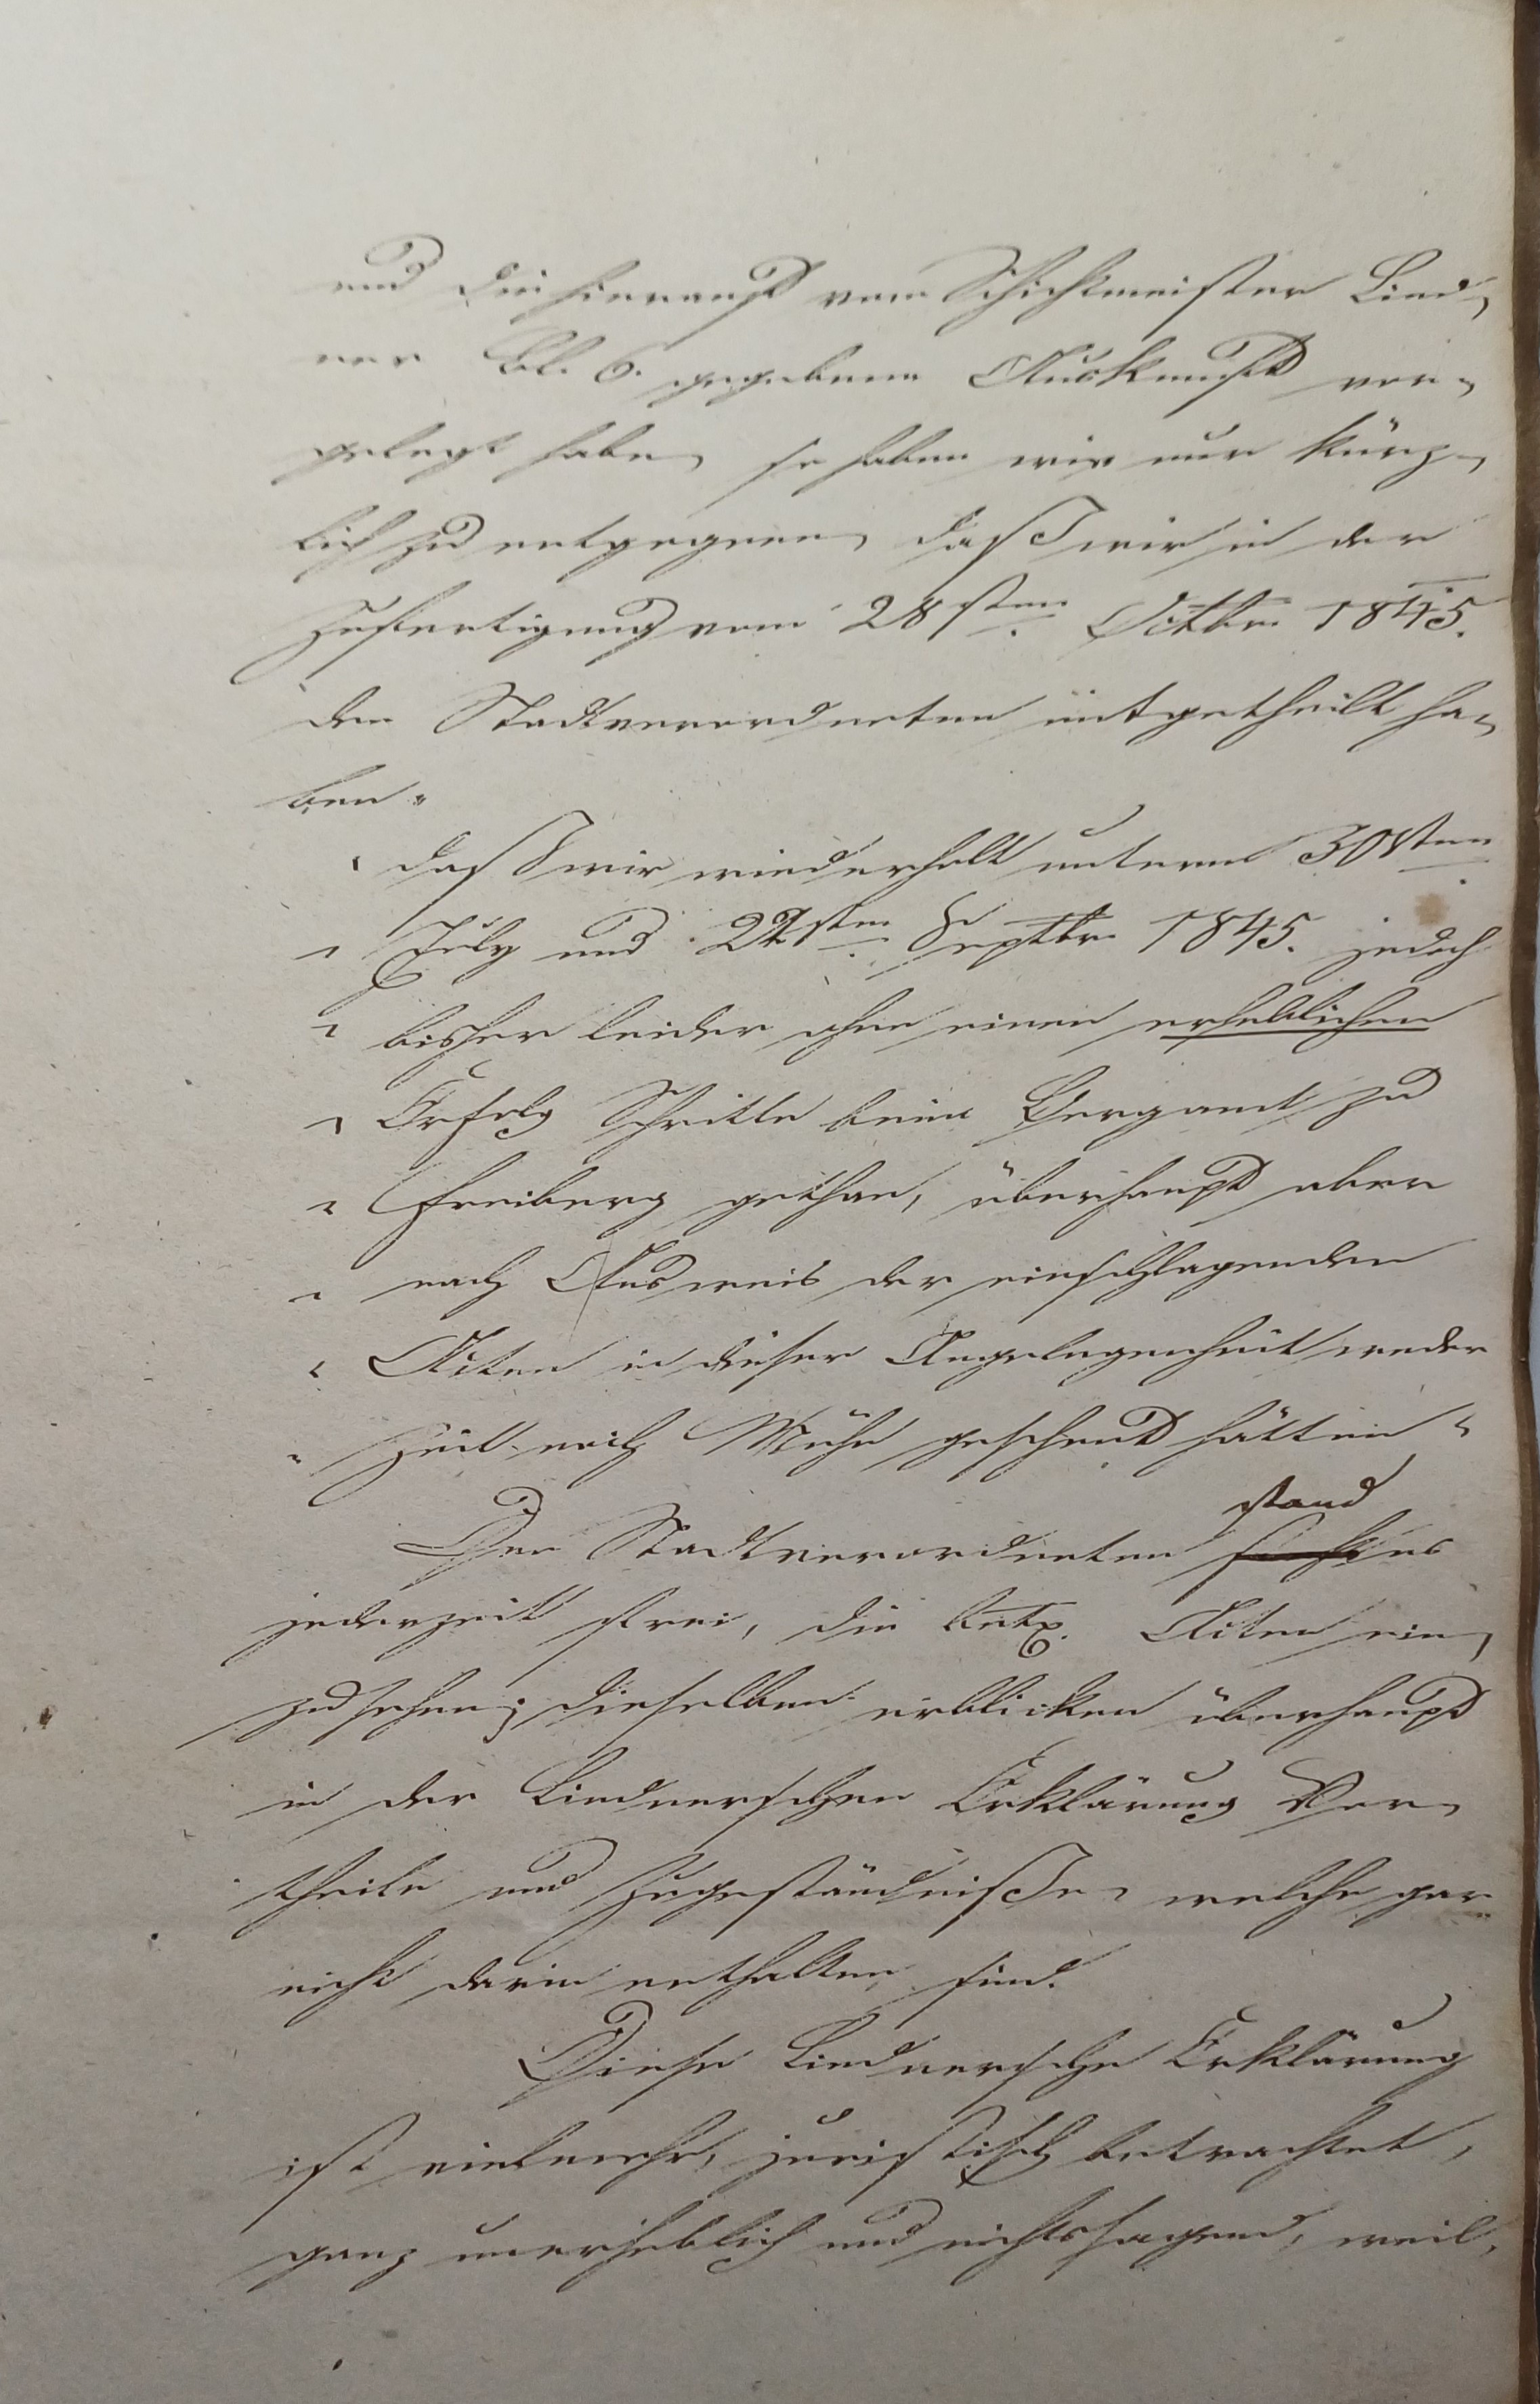 und die hierauf vom Schichtmeister Lind-
ner Bl. 6. gegebene Auskunft vor-
gelegt habe, so haben wir nur kürz-
lich zu entgegnen, daß wir in der
Zufertigung vom 28sten. Octbr. 1845.
den Stadtverordneten mitgetheilt ha-
ben:
" daß wir wiederholt unterm 30sten
" July und 22sten. Septbr. 1845. jedoch
" bisher leider ohne einen erheblichen
" Erfolg Schritte beim Bergamt zu
" Freiberg gethan, überhaupt aber
" nach Ausweis der einschlagenden
" Acten in dieser Angelegenheit weder
" Zeit noch Mühe gescheut hätten "
stand
Den Stadtverordneten es
jederzeit frei, die betr. Acten ein-
zusehen; dieselben erblicken überhaupt
in der Lindnerschen Erklärung Vor-
theile und Zugeständniße, welche gar
nicht darin enthalten sind.
Diese Lindnersche Erklärung
ist vielmehr, juristisch betrachtet,
ganz unerheblich und nichtssagend, weil,